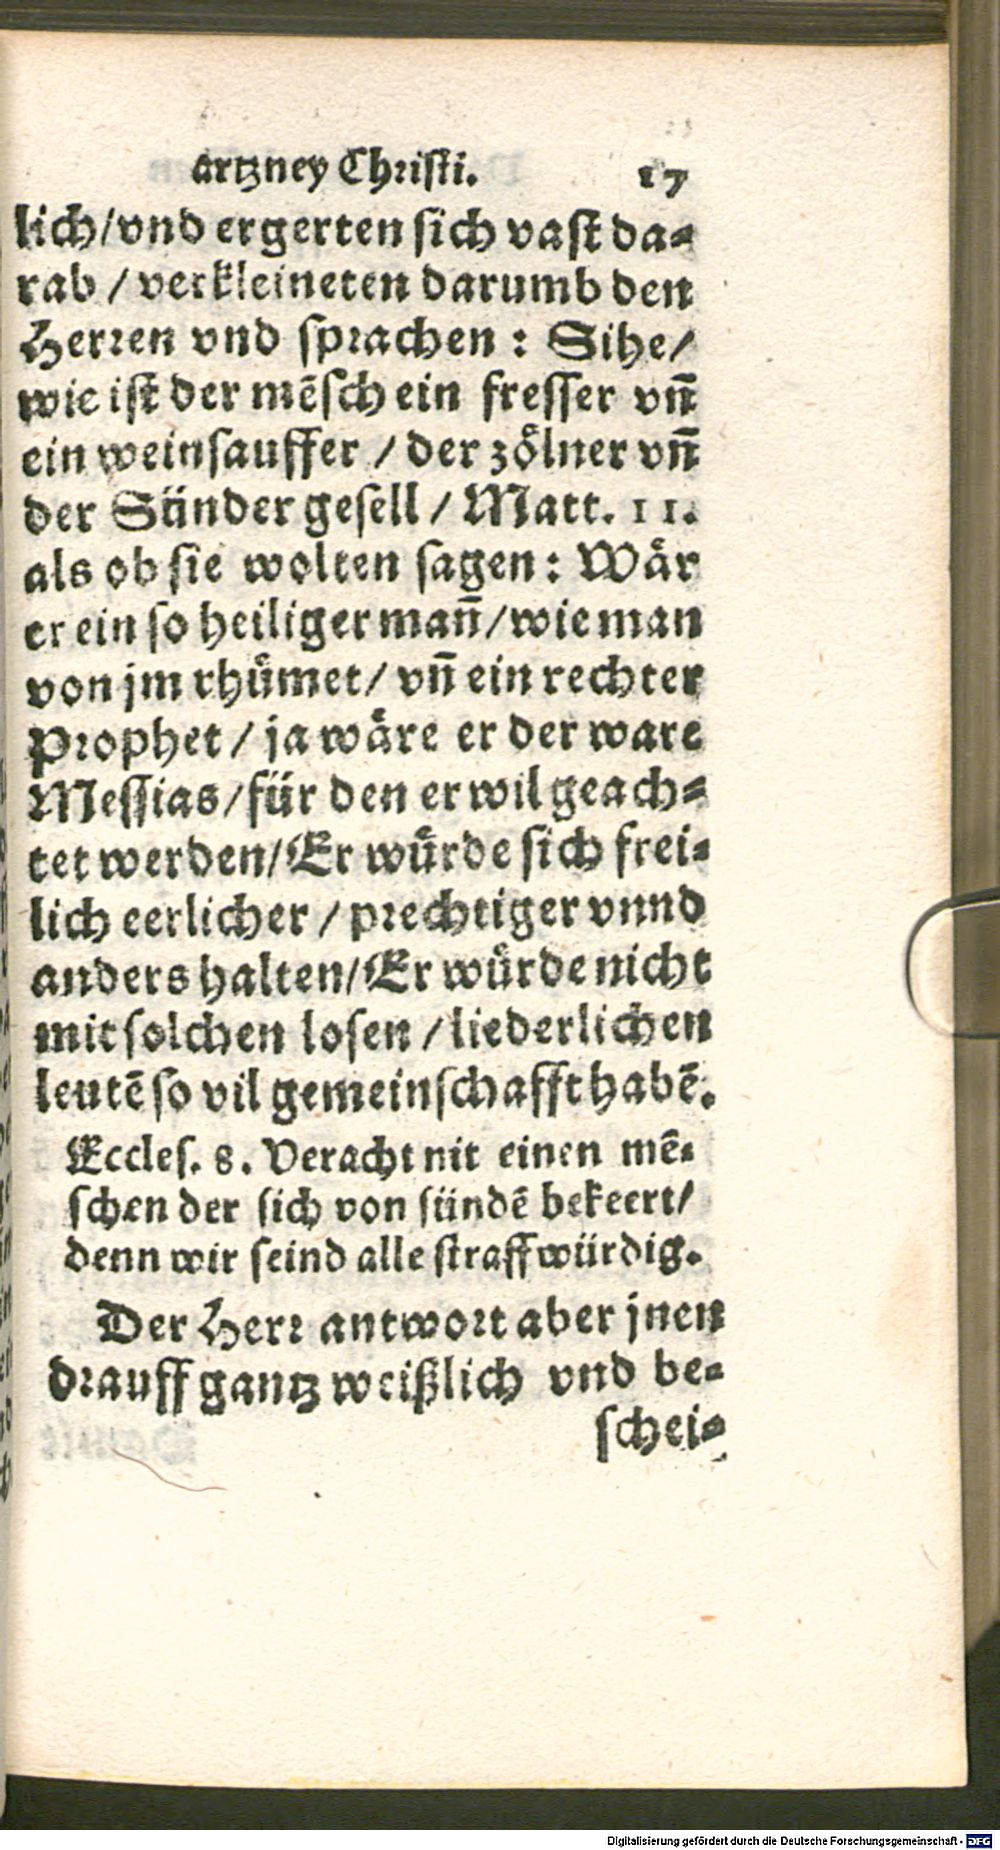 artzney Christi. 17
lich/vnd ergerten sich vast da-
rab / verkleineten darumb den
Herren vnd sprachen : Sihe/
wie ist der mẽsch ein fresser vñ
ein weinsauffer / der zoͤlner vñ
der Sünder gesell / Matt. 11.
als ob sie wolten sagen : Waͤr
er ein so heiliger mañ/wie man
von jm rhuͤmet/ vñ ein rechter
Prophet / ja waͤre er der ware
Messias/für den er wil geach-
tet werden/Er wuͤrde sich frei-
lich eerlicher / prechtiger vnnd
anders halten/Er wuͤrde nicht
mit solchen losen / liederlichen
leutẽ so vil gemeinschafft habẽ.
Eccles. 8. Veracht nit einen mẽ-
schen der sich von sündẽ bekeert/
denn wir seind alle straffwürdig.
Der Herr antwort aber jnen
drauff gantz weißlich vnd be-
schei-
Digitalisierung gefördert durch die Deutsche Forschungsgemeinschaft - DFG